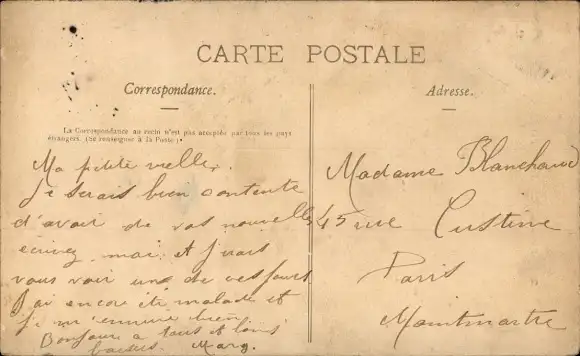 CARTE POSTALE
Correspondance.
Adresse.
La Correspondance au recto n'est pas acceptée par tous les pays
étrangers. (Se renseigner à la Poste).
Ma petite vielle,
Je serais bien contente
d'avoir de vos nouvelles
écrivez moi et j'irais
vous voir un de ces jours
J'ai encore été malade et
je m'ennuie bien
Bonjour a tous et bons
baisers. Marg.
Madame Blanchard
45 rue Custine
Paris
Montmartre